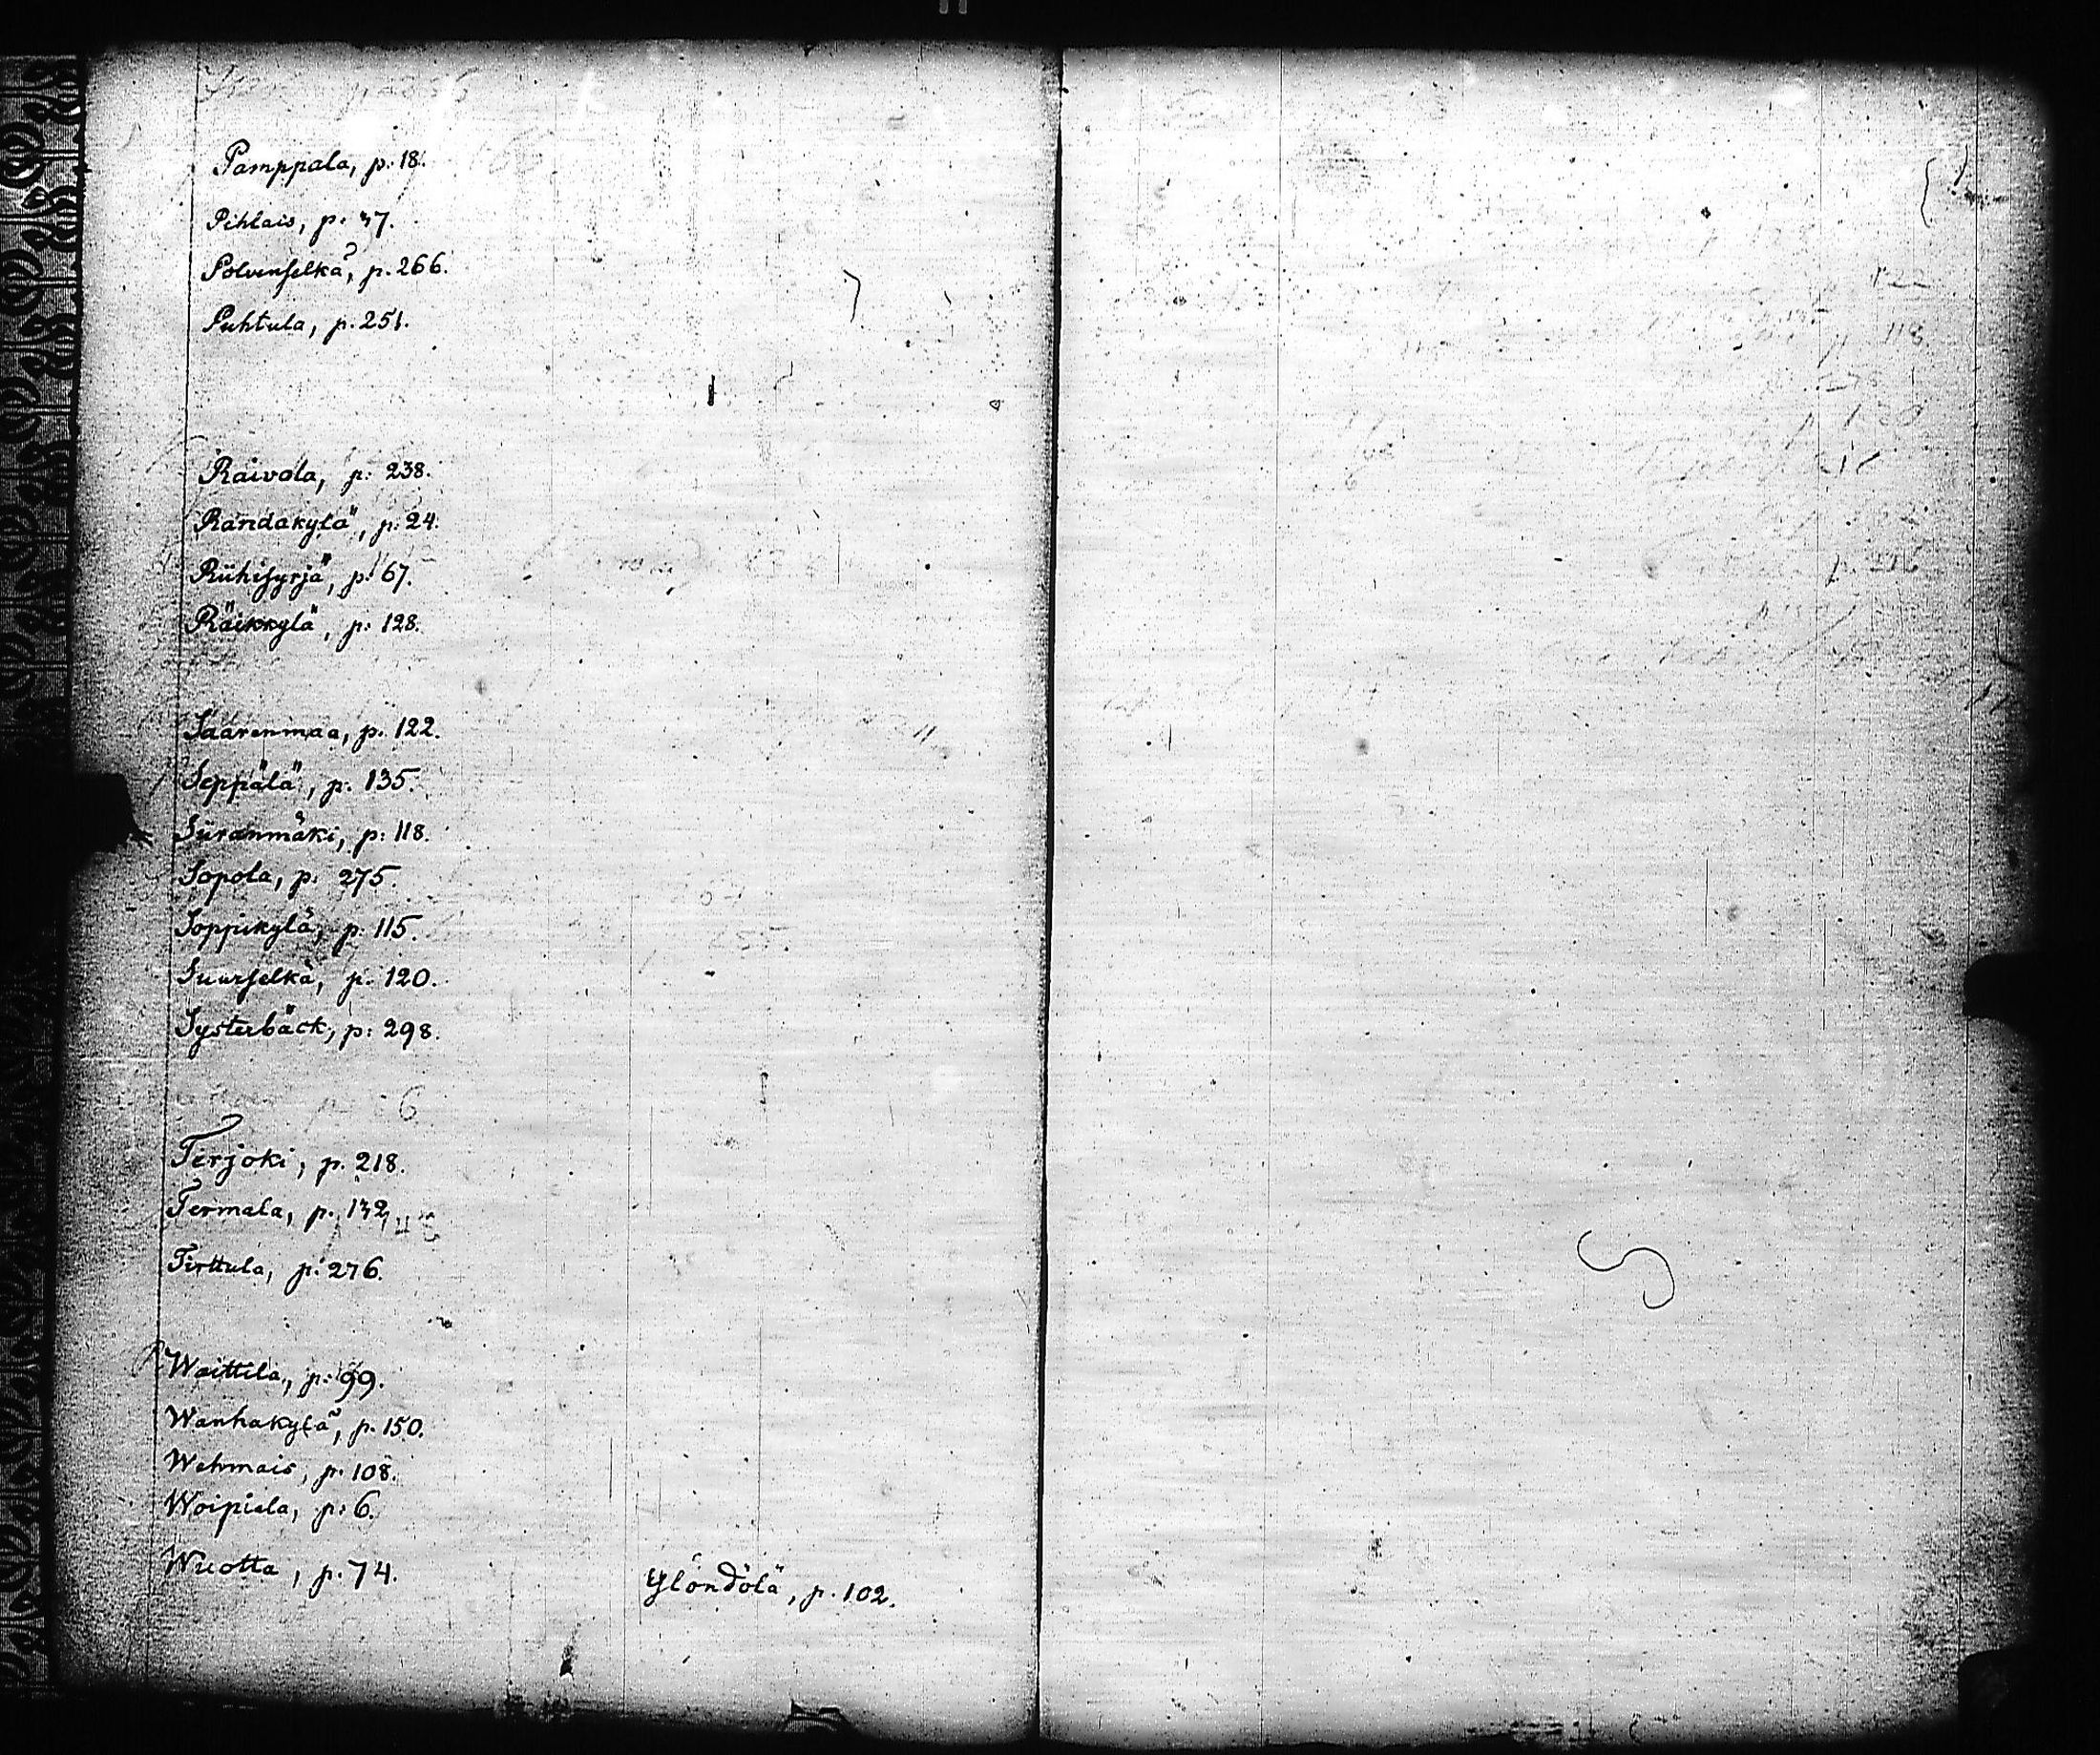 Pamppala, p. 18.
Pihlais, p. 47.
Polvenselkä, p. 266.
Puhtula, p. 251.
Raivola, p. 238.
Randakylä, p. 24.
Riihisyrjä, p. 67.
Räikkylä, p. 128.
Saarenmaa, p. 122.
Seppälä, p. 135.
Siiranmäki, p. 118.
Sopola, p. 275.
Soppikylä, p. 115.
Suurselkä, p. 120.
Systerbäck, p. 298.
Terjoki, p. 218.
Termala, p. 132
Tirttula, p. 276.
Waittila, p. 99.
Wanhakylä, p. 150.
Wehmais, p. 108.
Woipiala, p. 6.
Wuotta, p. 74.
Ylöndölä, p. 102.